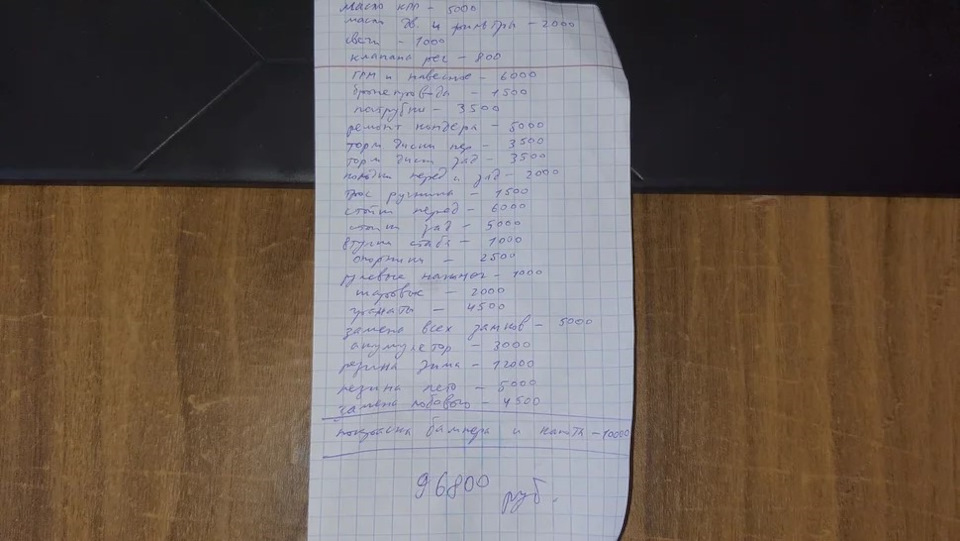 масло кпп - 5000
масло дв. и фильтры - 2000
свечи - 1000
клапана рег - 800
ГРМ и навесное - 6000
бронепровода - 1500
патрубки - 3500
ремонт кондера - 5000
торм диски пер - 3500
торм диск зад - 3500
колодки перед и зад - 2000
трос ручника - 1500
стойки перед - 6000
стойки зад - 5000
втулки стаба - 1000
опорники - 2500
рулевые наконеч - 1000
шаровые - 2000
гранаты - 4500
замена всех замков - 5000
акумулетор - 3000
резина зима - 12000
резина лето - 5000
замена лобового - 4500
покраска бампера и капота - 10000
96800 руб.